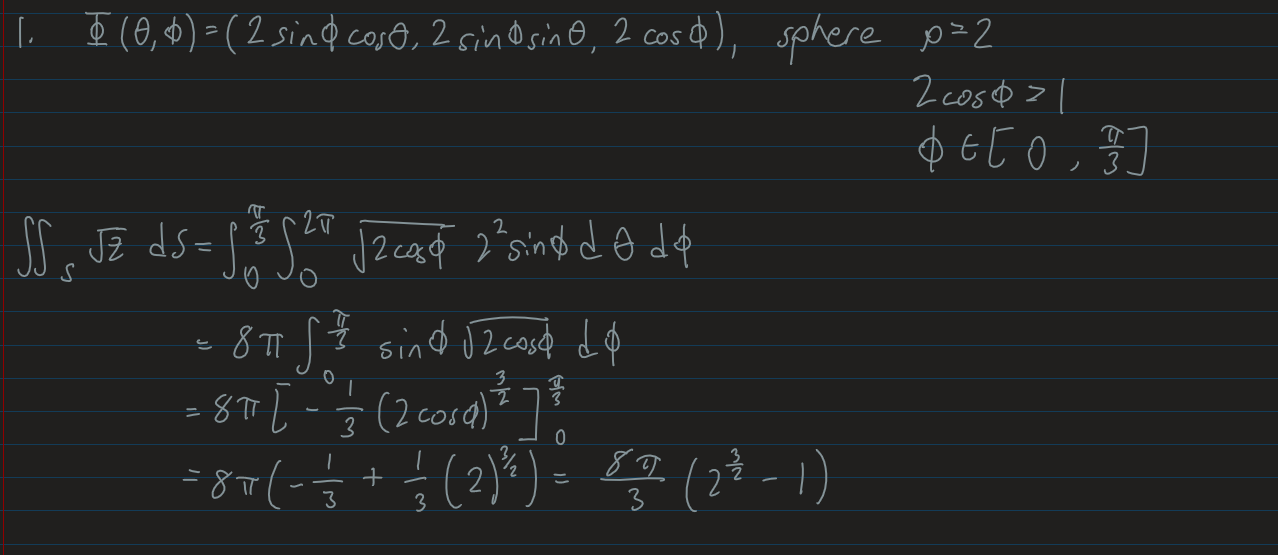 1. Φ(θ,ϕ)=(2 sinϕ cosθ, 2 sinϕ sinθ, 2 cosϕ), sphere ρ=2
2cosϕ ≥ 1
ϕ ∈ [0, π/3]
∬_S √z dS = ∫_0^{π/3} ∫_0^{2π} √(2cosϕ) 2² sinϕ dθ dϕ
= 8π ∫_0^{π/3} sinϕ √(2cosϕ) dϕ
= 8π [-1/3 (2cosϕ)^{3/2}]_0^{π/3}
= 8π(-1/3 + 1/3 (2)^{3/2}) = 8π/3 (2^{3/2} - 1)